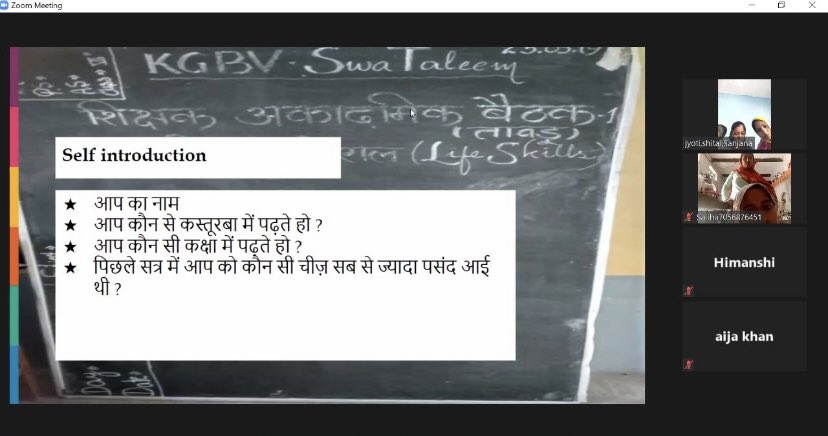 Zoom Meeting
KGBV - SwaTaleem
23.05.19
शिक्षक अकादमिक बैठक-1
(तावडू)
(Life Skills)
Self introduction
★ आप का नाम
★ आप कौन से कस्तूरबा में पढ़ते हो ?
★ आप कौन सी कक्षा में पढ़ते हो ?
★ पिछले सत्र में आप को कौन सी चीज़ सब से ज्यादा पसंद आई
थी ?
Day:
Date:
jyoti,shital,Sanjana
Saliha7056876451
Himanshi
aija khan